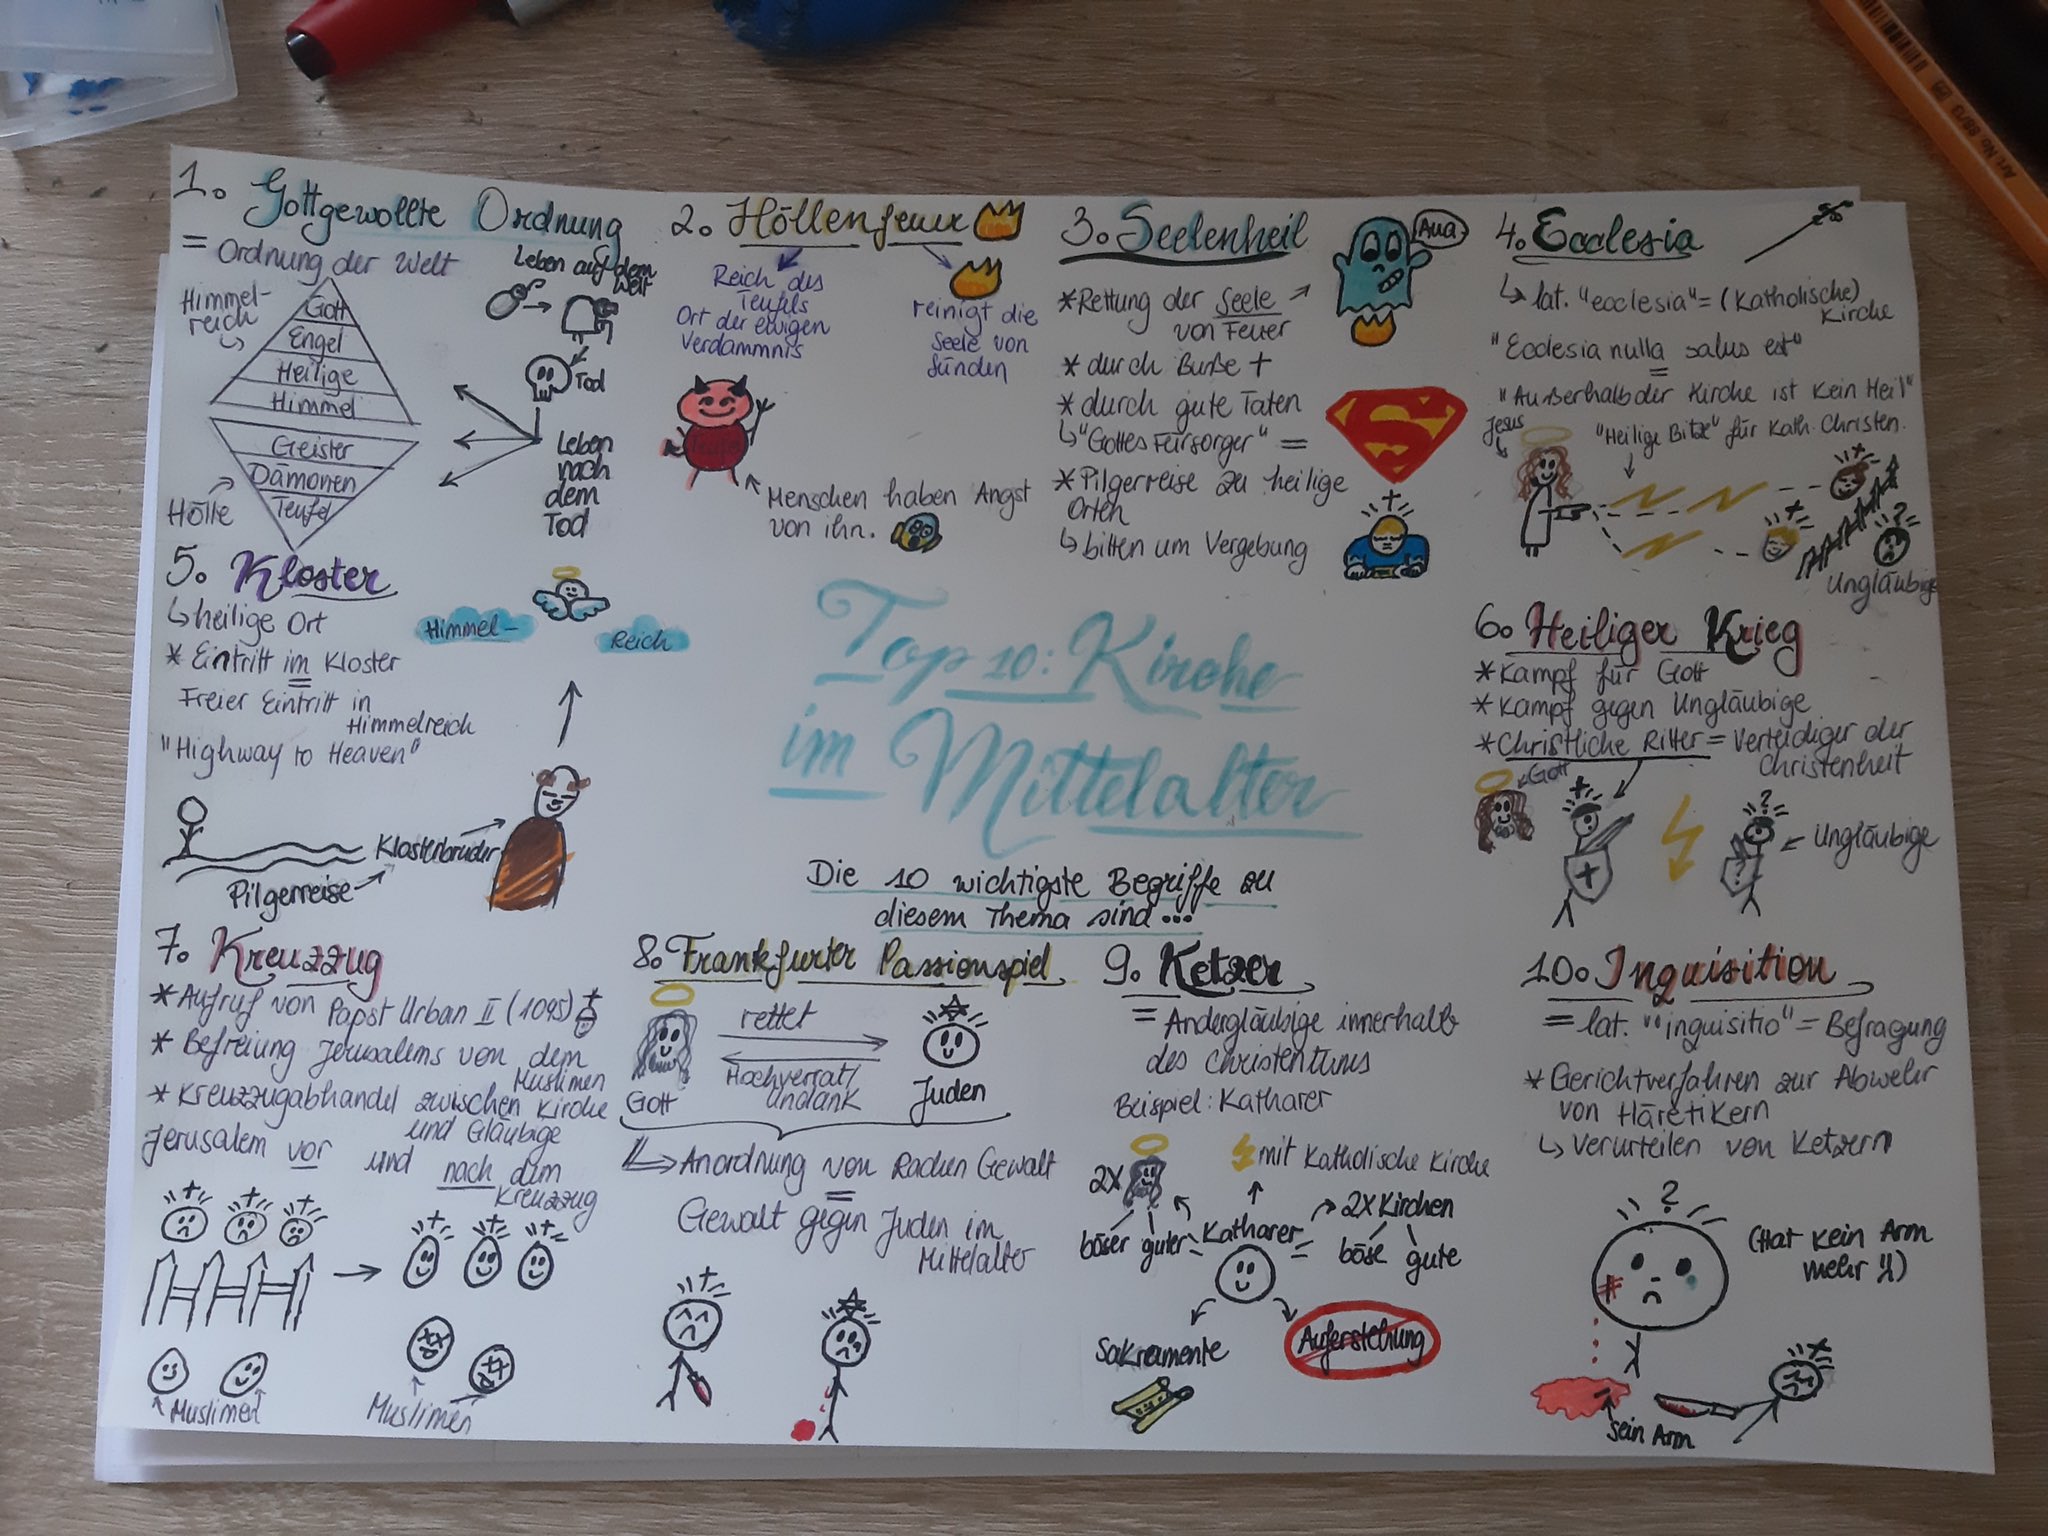 1. Gottgewollte Ordnung
= Ordnung der Welt
Himmel-
reich
Gott
Engel
Heilige
Himmel
Geister
Dämonen
Teufel
Hölle
Leben auf dem
Welt
Tod
Leben
nach
dem
Tod
2. Höllenfeuer
Reich des
Teufels
Ort der ewigen
Verdammnis
reinigt die
Seele von
Sünden
Menschen haben Angst
von ihn.
3. Seelenheil
Aua
* Rettung der Seele
von Feuer
* durch Buße +
* durch gute Taten
"Gottes Fürsorger" =
* Pilgerreise zu heilige
Orten
bitten um Vergebung
4. Ecclesia
lat. "ecclesia" = (Katholische)
Kirche
"Ecclesia nulla salus est"
=
"Außerhalb der Kirche ist kein Heil"
Jesus
"Heilige Bitze" für Kath. Christen.
Ungläubige
5. Kloster
heilige Ort
* Eintritt im Kloster
=
Freier Eintritt in
Himmelreich
"Highway to Heaven"
Himmel-
Reich
Klosterbruder
Pilgerreise
Top 10: Kirche
im Mittelalter
Die 10 wichtigste Begriffe zu
diesem Thema sind...
6. Heiliger Krieg
* Kampf für Gott
* Kampf gegen Ungläubige
* Christliche Ritter = Verteidiger der
Christenheit
Gott
?
Ungläubige
7. Kreuzzug
* Aufruf von Papst Urban II (1095)
* Befreiung Jerusalems von dem
Muslimen
* Kreuzzugabhandel zwischen Kirche
und Gläubige
Jerusalem vor und nach dem
Kreuzzug
Muslimen
Muslimen
8. Frankfurter Passionspiel
rettet
Hochverrat/
Undank
Gott
Juden
Anordnung von Rachen Gewalt
=
Gewalt gegen Juden im
Mittelalter
9. Ketzer
= Andergläubige innerhalb
des Christentums
Beispiel: Katharer
mit Katholische Kirche
2x
böser guter
Katharer
2x Kirchen
böse gute
Sakramente
Auferstehung
10. Inquisition
= lat. "inquisitio" = Befragung
* Gerichtverfahren zur Abwehr
von Häretikern
Verurteilen von Ketzern
?
(Hat kein Arm
mehr :()
sein Arm
Art. No 88/3